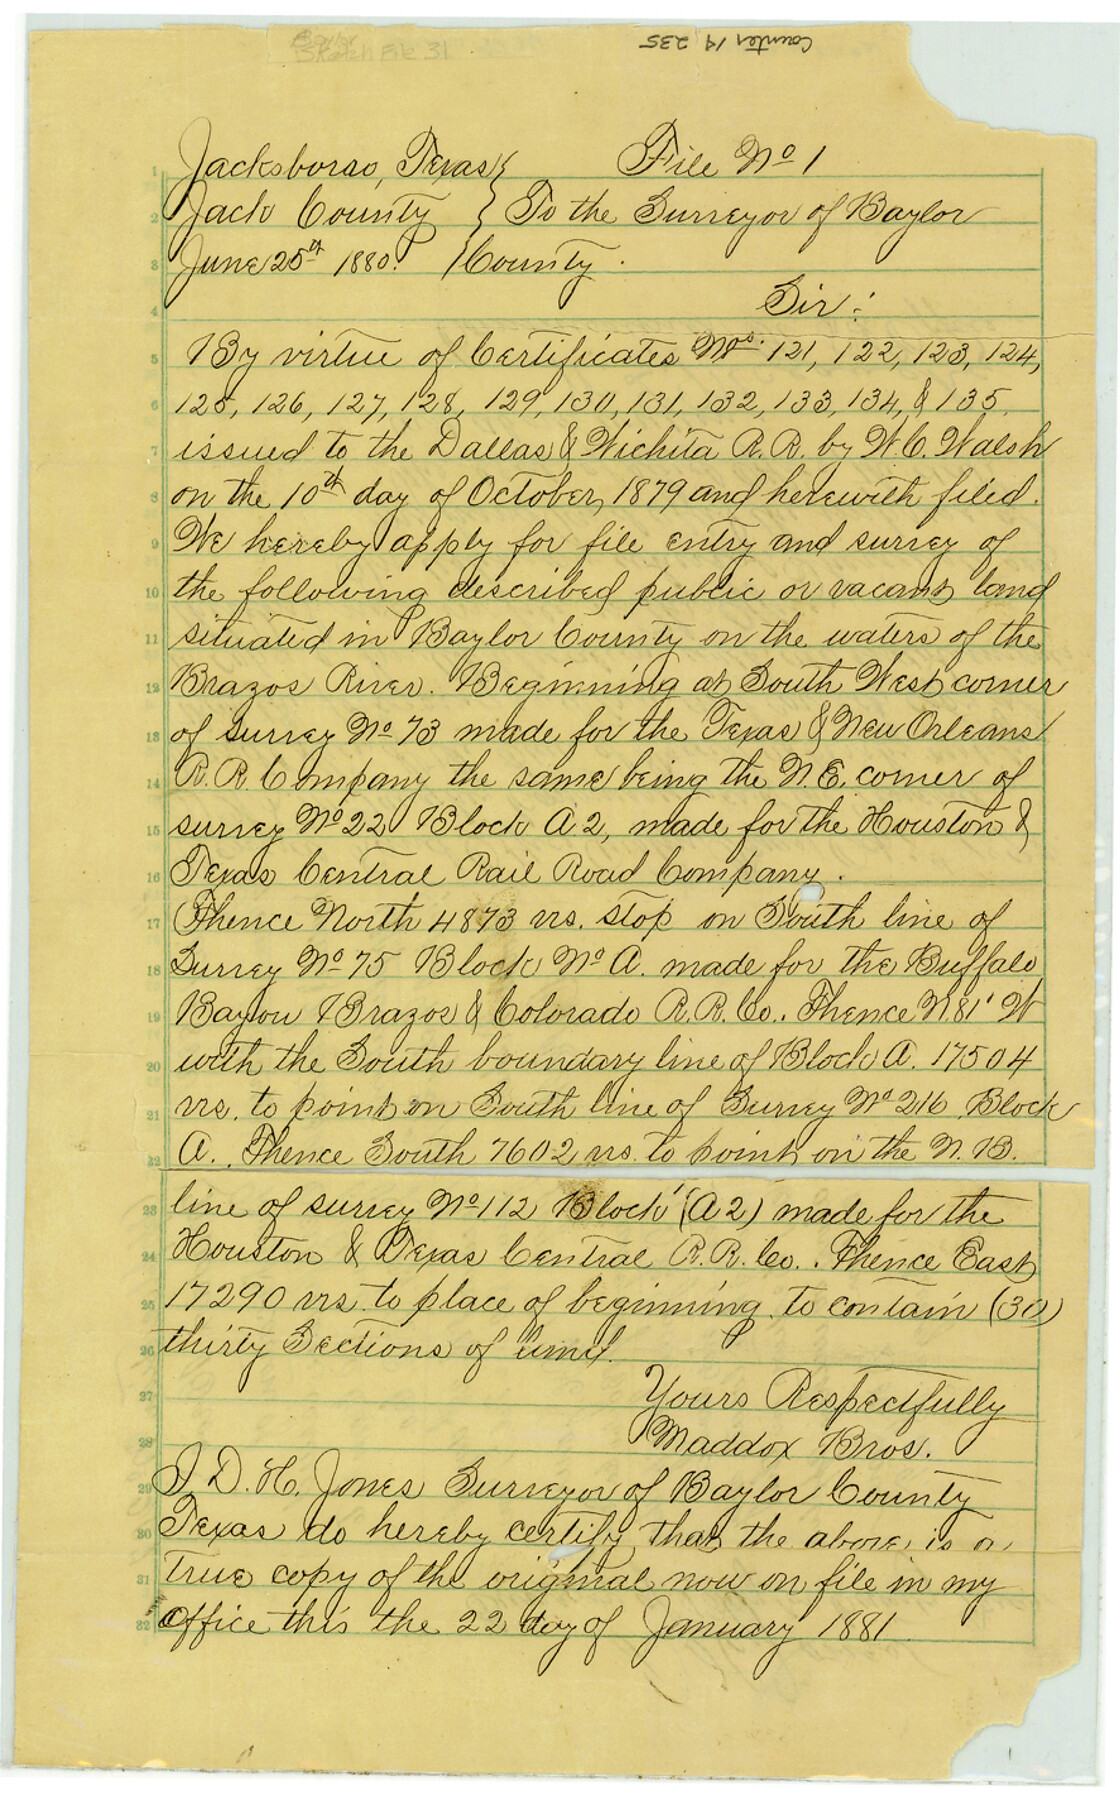 Baylor
Sketch File 31
Counter 19 235
Jacksboroo, Texas } File No 1
Jack County } To the Surveyor of Baylor
June 25th 1880. } County.
Sir:
By virtue of Certificates Nos. 121, 122, 123, 124,
125, 126, 127, 128, 129, 130, 131, 132, 133, 134, & 135,
issued to the Dallas & Wichita R.R. by W.C. Walsh
on the 10th day of October, 1879 and herewith filed.
We hereby apply for file entry and survey of
the following described public or vacant land
situated in Baylor County on the waters of the
Brazos River. Beginning at South West corner
of survey No 73 made for the Texas & New Orleans
R.R. Company the same being the N.E. corner of
survey No 22 Block A2, made for the Houston &
Texas Central Rail Road Company.
Thence North 4873 vrs. stop on South line of
Survey No 75 Block No A. made for the Buffalo
Bayou Brazos & Colorado R.R. Co. Thence N 81' W
with the South boundary line of Block A. 17504
vrs. to point on South line of Survey No 216 Block
A. Thence South 7602 vrs. to point on the N.B.
line of survey No 112 Block (A2) made for the
Houston & Texas Central R.R. Co. Thence East
17290 vrs. to place of beginning to contain (30)
thirty Sections of land.
Yours Respectfully
Maddox Bros.
I D.H. Jones Surveyor of Baylor County
Texas do hereby certify that the above, is a
True copy of the original now on file in my
office this the 22 day of January 1881
1
2
3
4
5
6
7
8
9
10
11
12
13
14
15
16
17
18
19
20
21
22
23
24
25
26
27
28
29
30
31
32